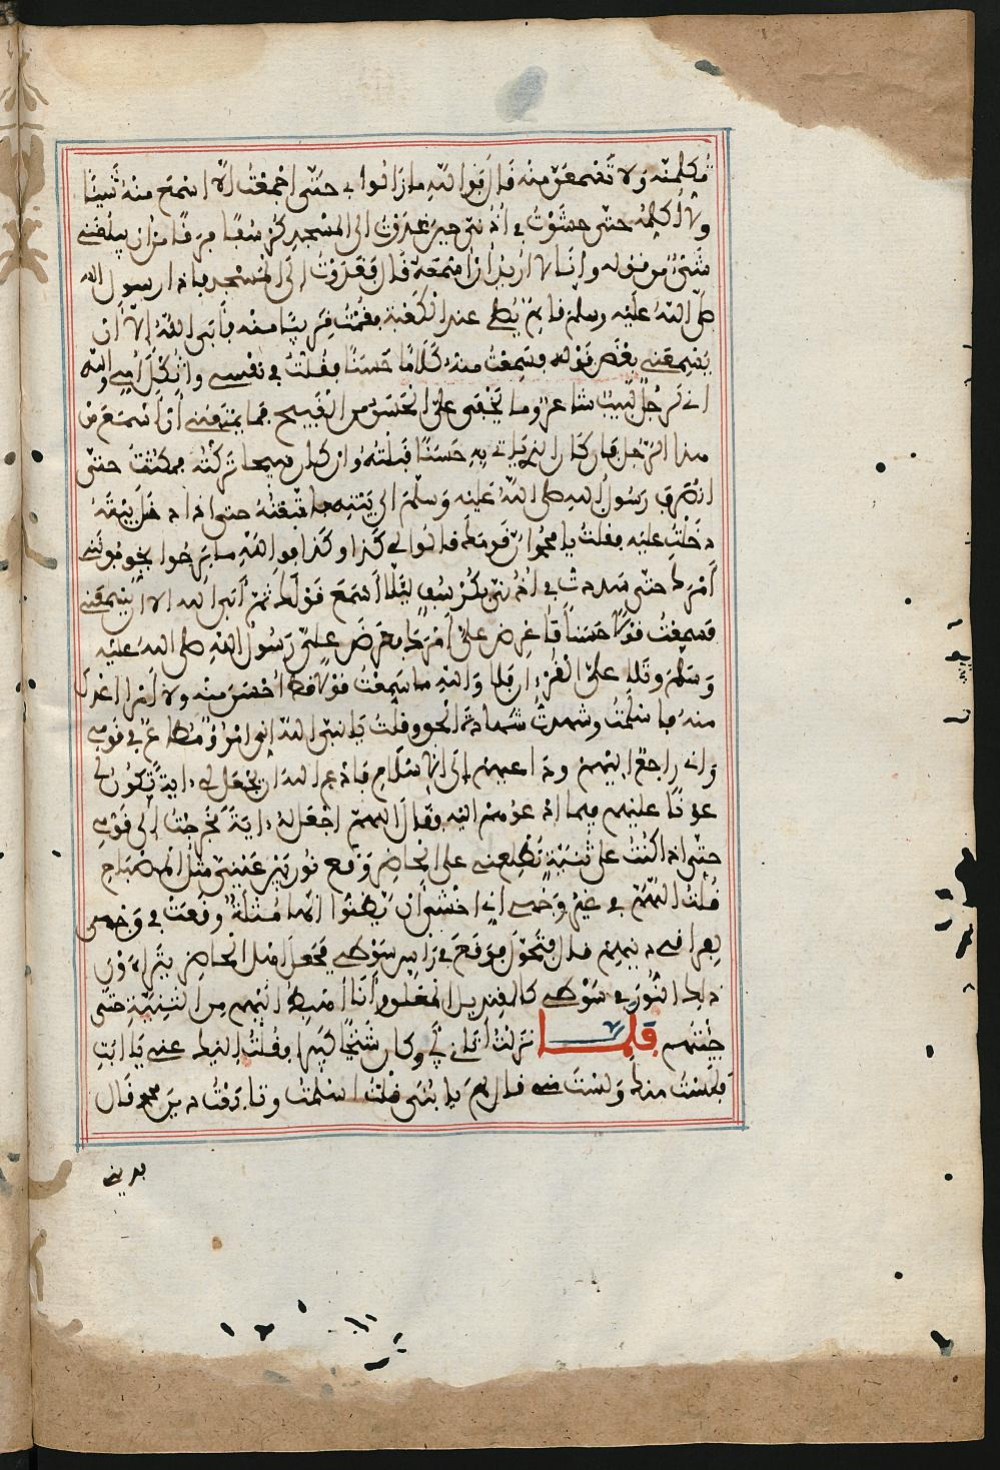 تكلمنه ولا تسمعن منه قال فوالله ما زالوا بي حتى اجمعت الا اسمع منه شيئا
ولا اكلمه حتى حشوت في اذني حين غدوت الى المسجد كرسفا فرقا من ان يبلغني
شيء من قوله وانا لا اريد ان اسمعه قال فغدوت الى المسجد فاذا رسول الله
صلى الله عليه وسلم قائم يصلي عند الكعبة فقمت قريبا منه فابى الله الا ان
يسمعني بعض قوله فسمعت منه كلاما حسنا فقلت في نفسي واثكل امي والله
اني لرجل لبيب شاعر وما يخفى علي الحسن من القبيح فما يمنعني ان اسمع من
هذا الرجل فان كان الذي ياتي به حسنا قبلته وان كان قبيحا تركته فمكثت حتى
انصرف رسول الله صلى الله عليه وسلم الى بيته فاتبعته حتى اذا دخل بيته
دخلت عليه فقلت يا محمد ان قومك قالوا لي كذا وكذا فوالله ما برحوا يخوفونني
امرك حتى سددت في اذني بكرسف ليلا اسمع قولك ثم ابى الله الا ان يسمعني
فسمعت قولا حسنا فاعرض علي امرك فعرض علي رسول الله صلى الله عليه
وسلم وتلا علي القرءان فلا والله ما سمعت قولا قط احسن منه ولا امرا اعدل
منه فاسلمت وشهدت شهادة الحق وقلت يا نبي الله اني امرؤ مطاع في قومي
واني راجع اليهم وداعيهم الى الاسلام فادع الله ان يجعل لي ءاية تكون لي
عونا عليهم فيما ادعوهم اليه فقال اللهم اجعل له ءاية فخرجت الى قومي
حتى اذا كنت على ثنية تطلعني على الحاضر وقع نور بين عينيي مثل المصباح
قلت اللهم في غير وجهي اني اخشى ان يظنوا انها مثلة وقعت في وجهي
لفراقي دينهم قال فتحول فوقع في راس سوطي فجعل اهل الحاضر يتراءون
ذلك النور في سوطي كالقنديل المعلق وانا اهبط اليهم من الثنية حتى
جئتهم فلما نزلت اتاني ابي وكان شيخا كبيرا فقلت اليك عني يا ابت
فلست منك ولست مني قال لم يا بني قلت اسلمت وتابعت دين محمد قال
بديني